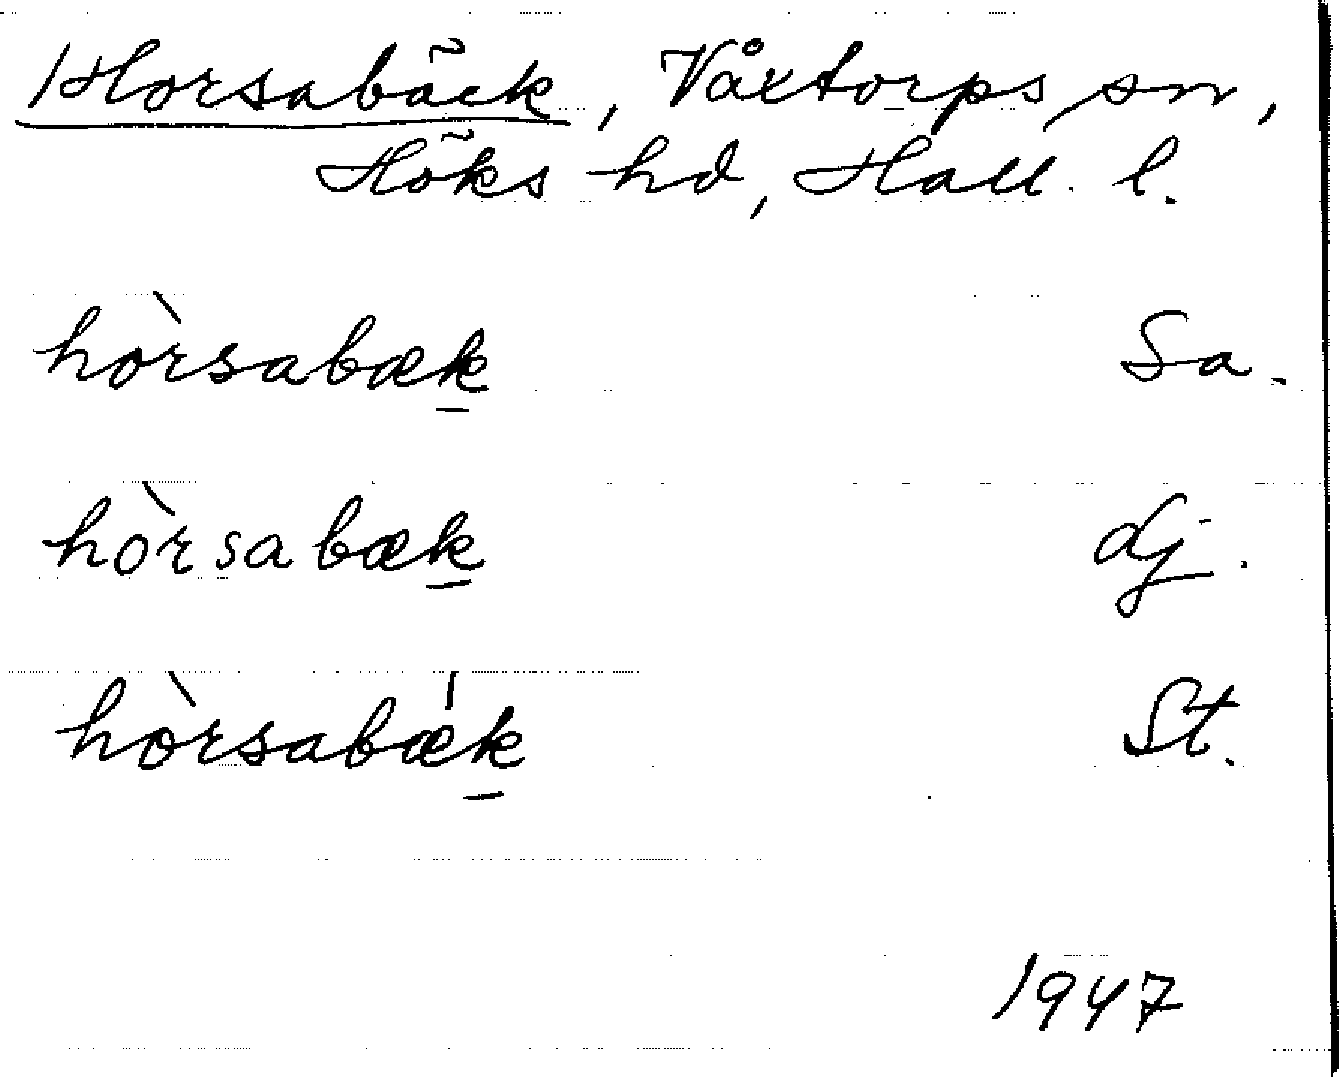 Horsabäck, Våxtorps sn,
Höks hd, Hall. l.
hòrsabæk Sa.
hòrsabæk dj.
hòrsabǽk St.
1947